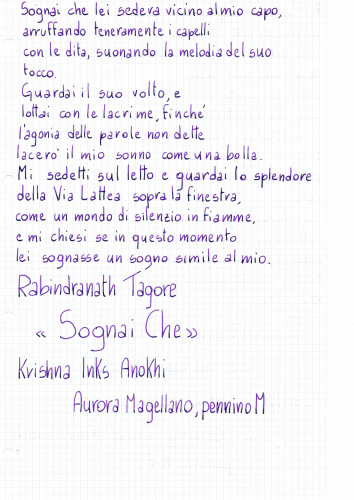 Sognai che lei sedeva vicino al mio capo,
arruffando teneramente i capelli
con le dita, suonando la melodia del suo
tocco.
Guardai il suo volto, e
lottai con le lacrime, finché
l'agonia delle parole non dette
lacerò il mio sonno come una bolla.
Mi sedetti sul letto e guardai lo splendore
della Via Lattea sopra la finestra,
come un mondo di silenzio in fiamme,
e mi chiesi se in questo momento
lei sognasse un sogno simile al mio.
Rabindranath Tagore
« Sognai Che »
Krishna Inks Anokhi
Aurora Magellano, pennino M